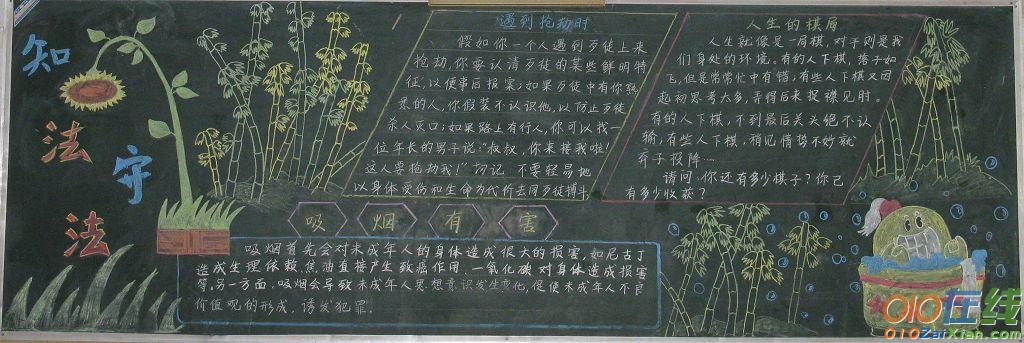 知
法
守
法
遇到抢劫时
假如你一个人遇到歹徒上来
抢劫,你要认清歹徒的某些鲜明特
征,以便事后报案;如果歹徒中有你熟
悉的人,你假装不认识他,以防止歹徒
杀人灭口;如果路上有行人,你可以找一
位年长的男子说:“叔叔,你来接我啦!
这人要抢劫我!”切记 不要轻易地
以身体受伤和生命为代价去同歹徒搏斗
人生的棋局
人生就像是一局棋,对手则是我
们身处的环境。有的人下棋,落子如
飞,但是常常忙中有错;有些人下棋又因
起初思考太多,弄得后来捉襟见肘。
有的人下棋,不到最后关头绝不认
输;有些人下棋,稍见情势不妙就
弃子投降…
请问,你还有多少棋子?你已
有多少收获?
吸烟有害
吸烟首先会对未成年人的身体造成很大的损害,如尼古丁
造成生理依赖、焦油直接产生致癌作用、一氧化碳对身体造成损害
等。另一方面,吸烟会导致未成年人思想意识发生变化,促使未成年人不良
价值观的形成,诱发犯罪.
010在线
010ZaiXian.com